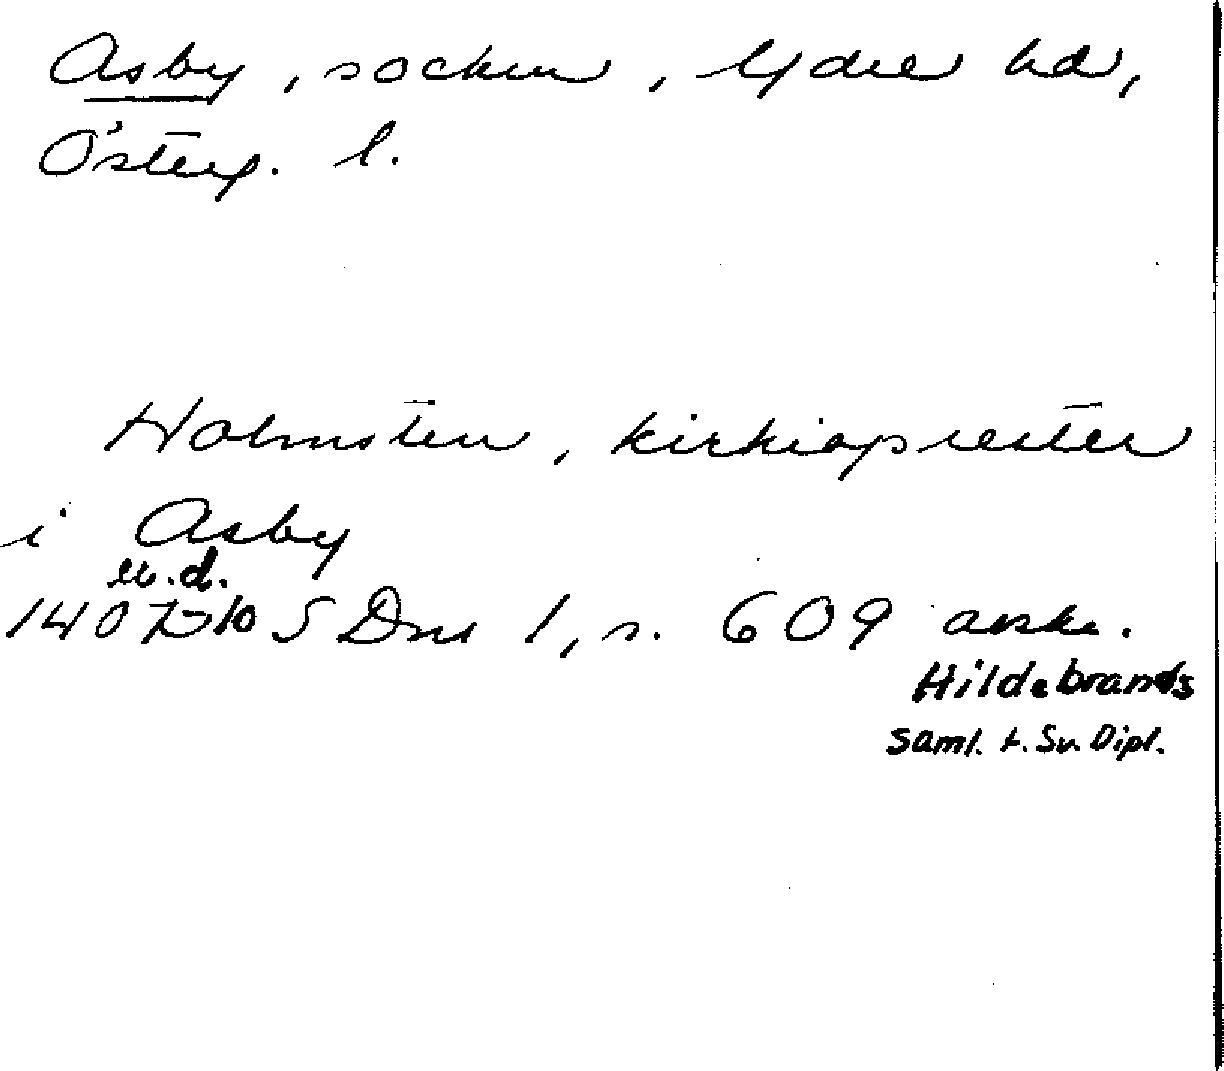 Asby, socken, Ydre hd,
Österg. l.
Holmsten, kirkiopræster
i Asby
u.d.
1407-10 SDns 1, s. 609 avskr.
Hildebrands
saml. t. Sv. Dipl.